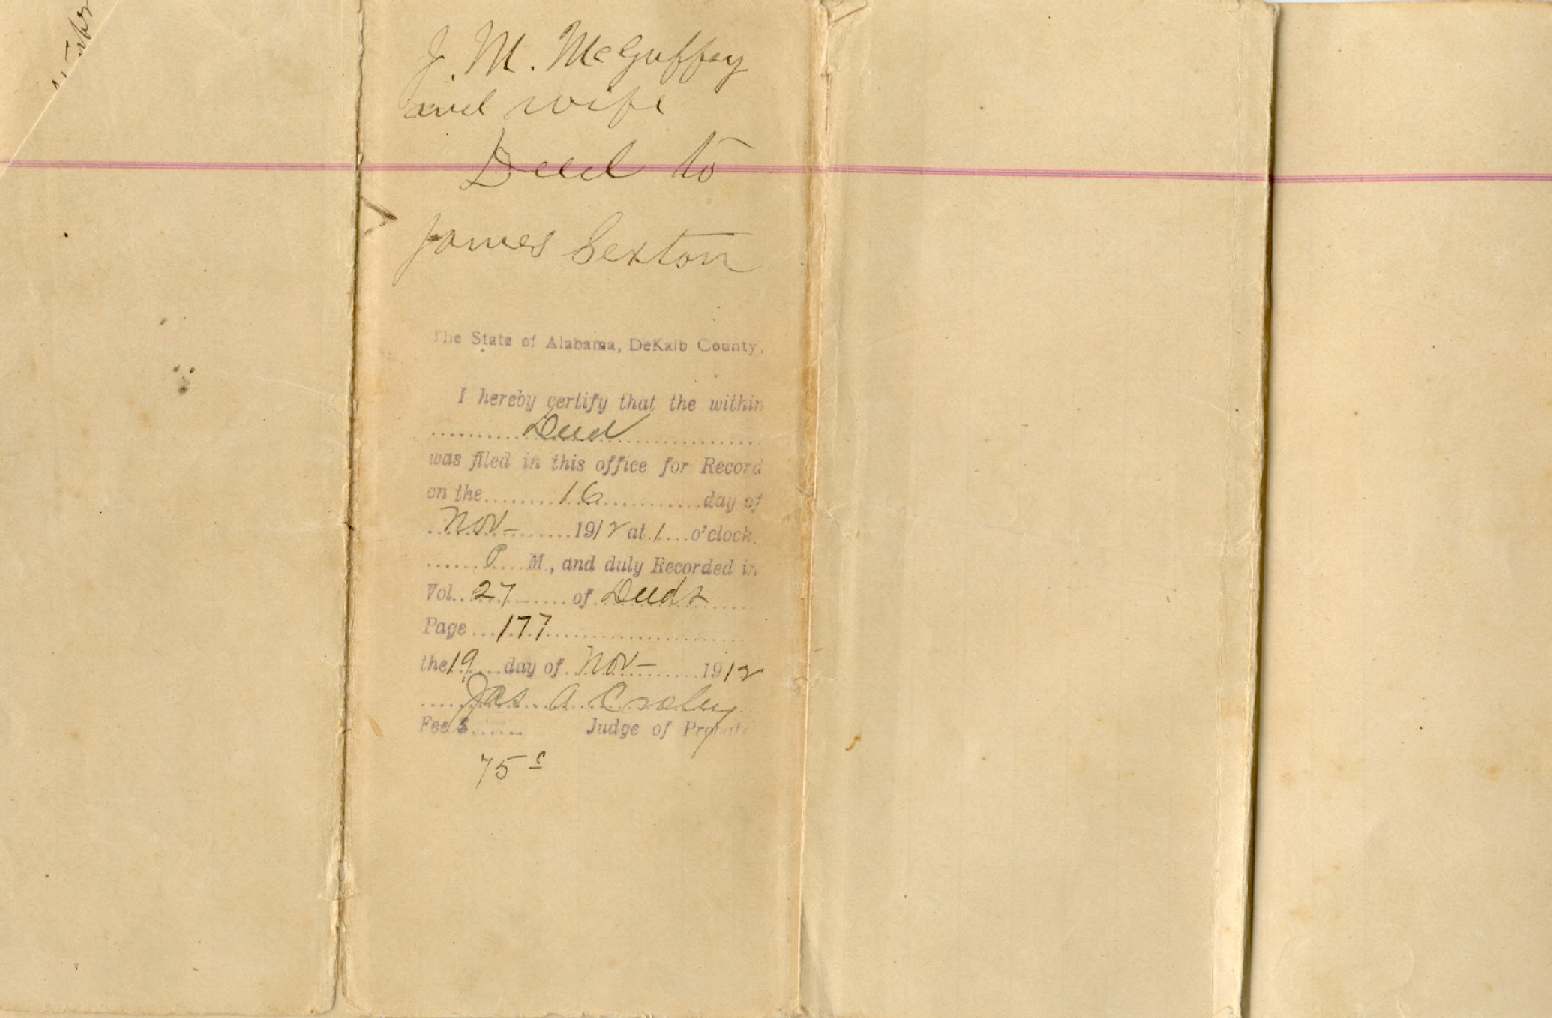 J. M. McGuffey
and wife
Deed to
James Sexton
The State of Alabama, DeKalb County,
I hereby certify that the within
..........Deed....................
was filed in this office for Record
on the.........16............day of
..Nov-.......1912 at 1...o'clock.
......P...M., and duly Recorded in
Vol..27.......of Deeds....
Page...177......................
the 19....day of..Nov-.......1912
....Jas. A. Croley
Fee $...... Judge of Probate
75¢